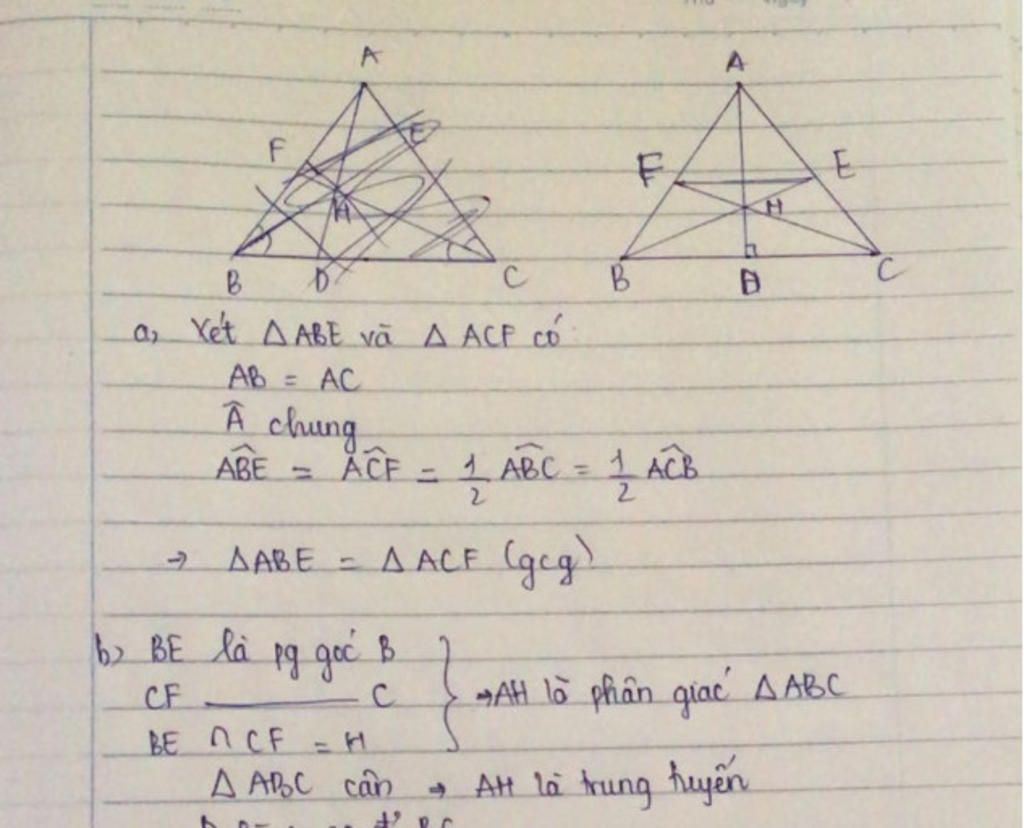 A
F
E
H
B
D
C
A
F
E
H
B
D
C
a, Xét ΔABE và ΔACF có
AB = AC
Â chung
\widehat{ABE} = \widehat{ACF} = 1/2 \widehat{ABC} = 1/2 \widehat{ACB}
→ ΔABE = ΔACF (gcg)
b, BE là pg góc B
CF ——— C
BE ∩ CF = H
} → AH là phân giác ΔABC
ΔABC cân → AH là trung tuyến
BC